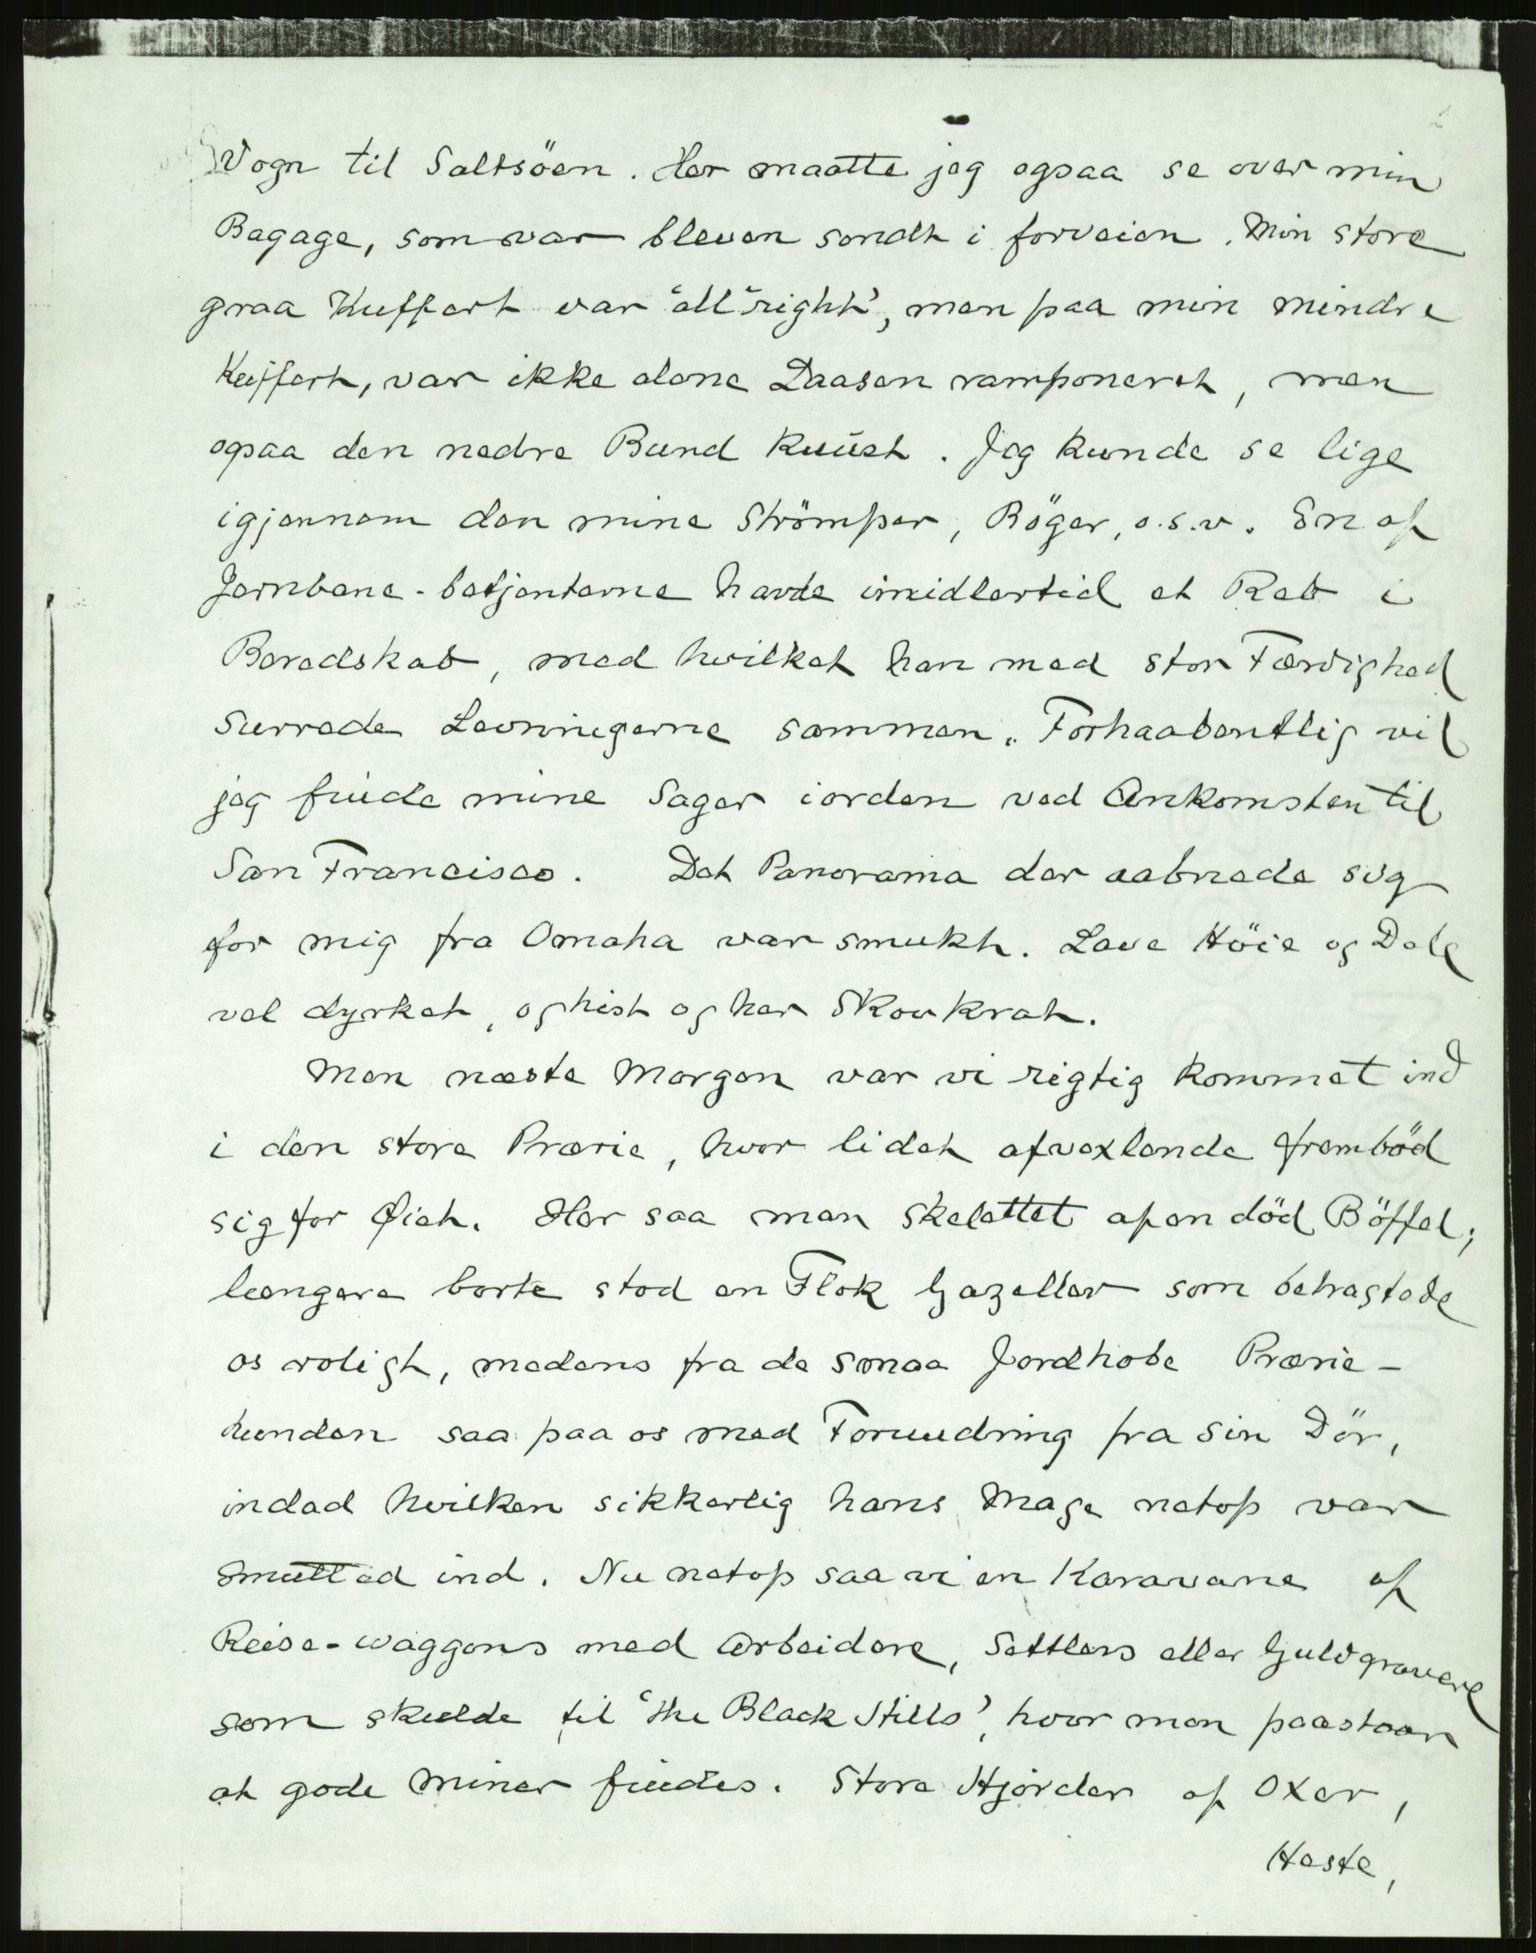 Vogn til Saltsöen. Her maatte jeg ogsaa se over min
Bagage, som var bleven sendt i forveien. Min store
graa Kuffert var 'all right', men paa min mindre
Kuffert, var ikke alene Laasen ramponeret, men
ogsaa den nedre Bund knust. Jeg kunde se lige
igjennem den mine Strömper, Böger, o.s.v. En af
Jernbane-betjenterne havde imidlertid et Reb i
Beredskab, med hvilket han med stor Færdighed
surrede Levningerne sammen. Forhaabentlig vil
jeg finde mine Sager iorden ved Ankomsten til
San Francisco. Det Panorama der aabnede sig
for mig fra Omaha var smukt. Lave Höie og Dale
vel dyrket, og hist og her Skovkrat.
Men næste Morgen var vi rigtig kommet ind
i den store Prærie, hvor lidet afvexlende fremböd
sig for Øiet. Her saa man skelettet af en död Böffel;
længere borte stod en Flok Gazeller som betragtede
os roligt, medens fra de smaa Jordhobe Prærie-
hunden saa paa os med Forundring fra sin Dör,
indad hvilken sikkerlig hans Mage netop var
smutted ind. Nu netop saa vi en Karavane af
Reise-waggons med Arbeidere, Settlers eller Guldgravere
som skulde til 'the Black Hills', hvor man paastaar
at gode Miner findes. Store Hjörder af Oxer,
Heste,